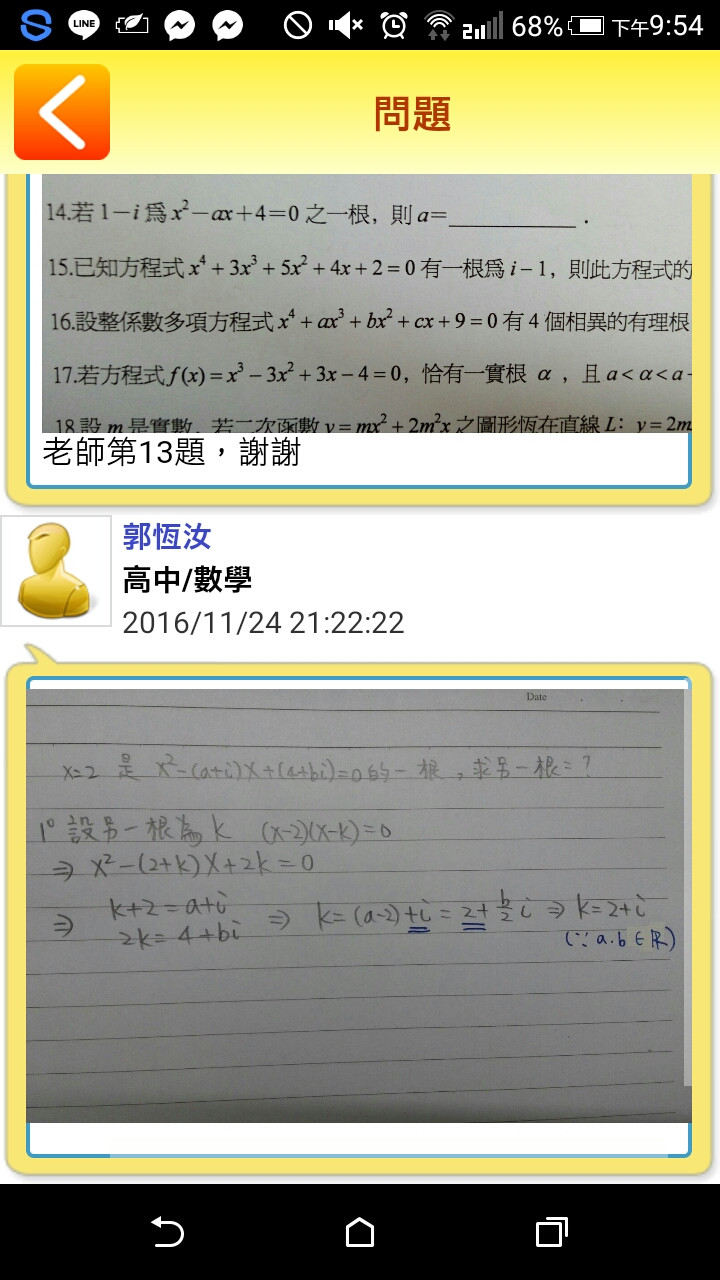 LINE
68%
下午9:54
問題
14.若 1−i 爲 x²−ax+4=0 之一根，則 a=__________．
15.已知方程式 x⁴+3x³+5x²+4x+2=0 有一根爲 i−1，則此方程式的
16.設整係數多項方程式 x⁴+ax³+bx²+cx+9=0 有 4 個相異的有理根
17.若方程式 f(x)=x³−3x²+3x−4=0，恰有一實根 α，且 a<α<a-
18.設 m 是實數，若二次函數 y=mx²+2m²x 之圖形恆在直線 L：y=2m
老師第13題，謝謝
郭恆汝
高中/數學
2016/11/24 21:22:22
Date
x=2 是 x²-(a+i)x+(4+bi)=0 的一根，求另一根=?
1° 設另一根為 k (x-2)(x-k)=0
⇒ x²-(2+k)x+2k=0
⇒ k+2=a+i
2k=4+bi
⇒ k=(a-2)+i=2+b/2 i ⇒ k=2+i
(∵ a.b∈R)